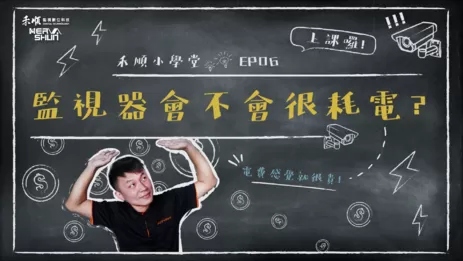 禾順監視數位科技
NERVA SHUN
上課囉!
禾順小學堂 EP06
監視器會不會很耗電?
電費感覺超很貴!